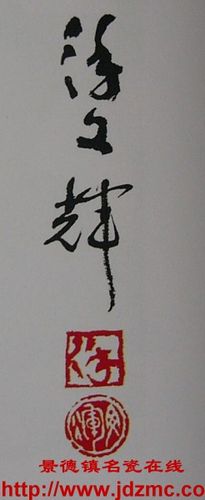 文輝
景德镇名瓷在线
http://www.jdzmc.co